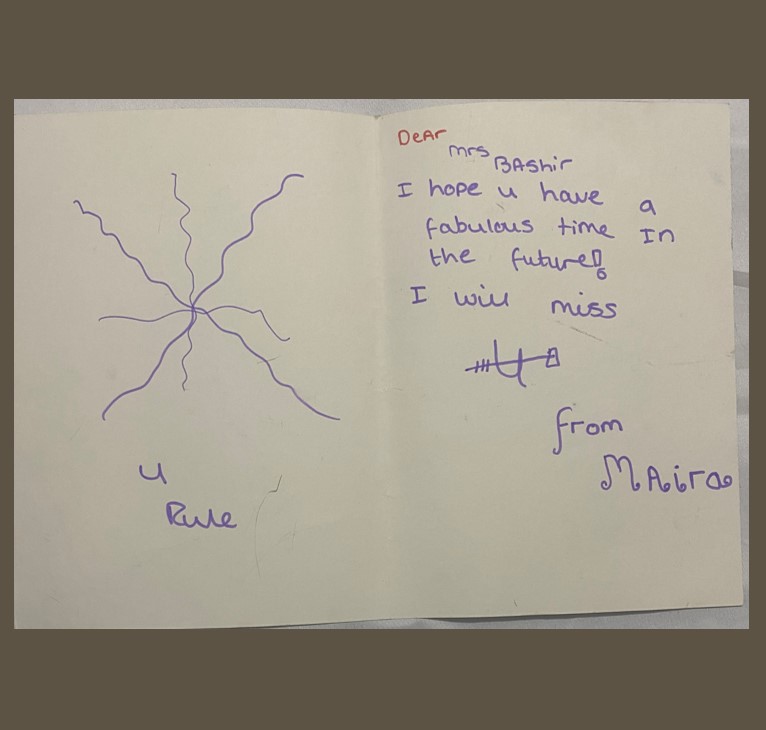 u
Rule
Dear
mrs
BAshir
I hope u have a
fabulous time In
the future!
I will miss
U
from
MAira